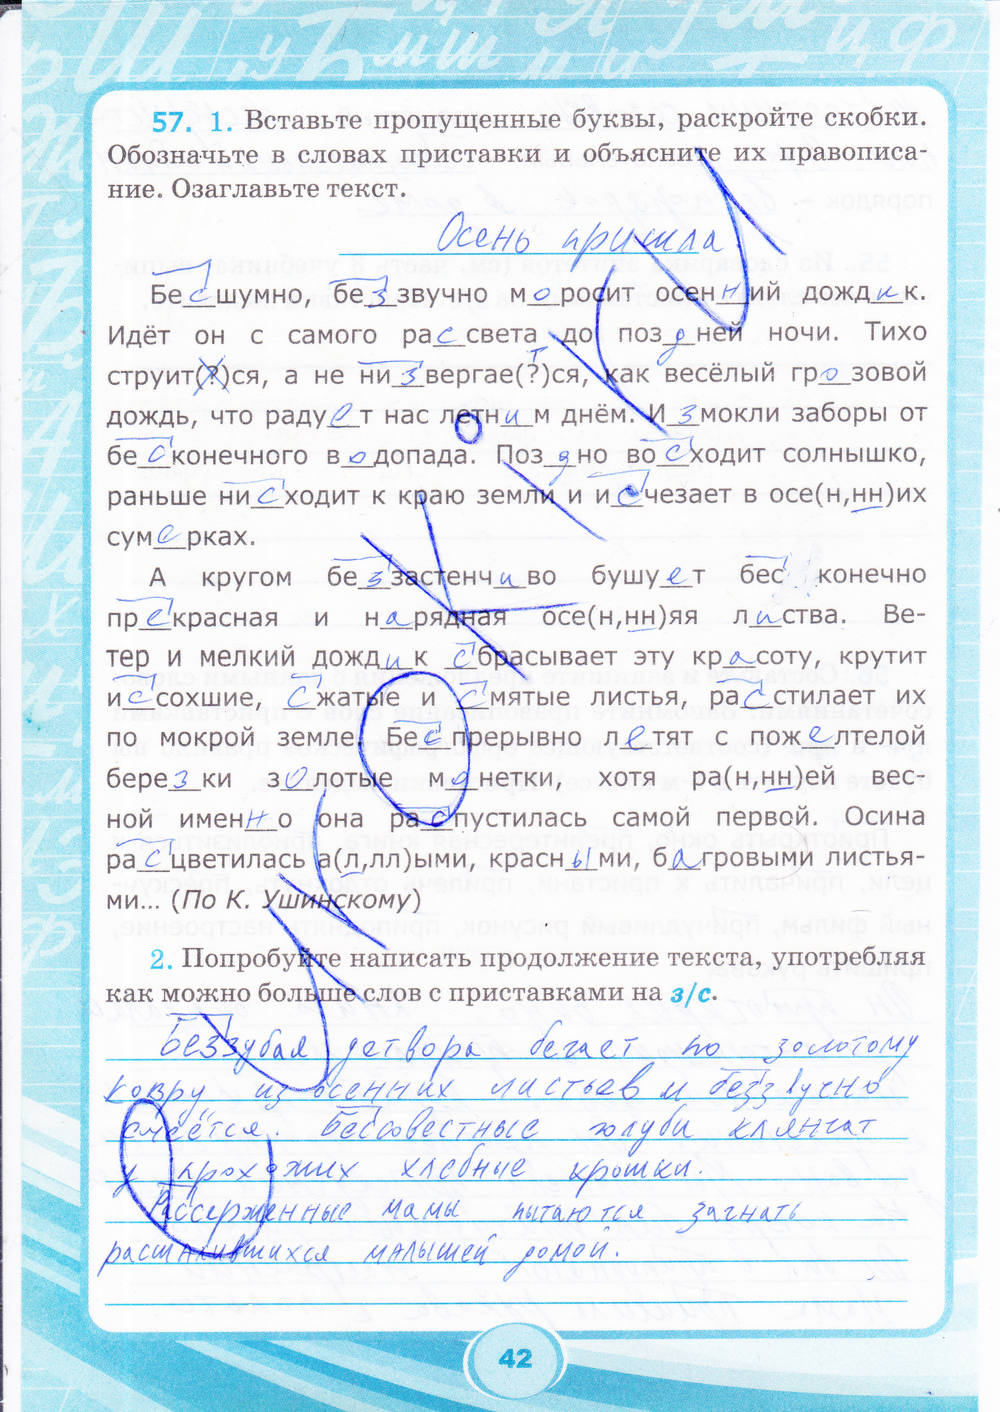 57. 1. Вставьте пропущенные буквы, раскройте скобки.
Обозначьте в словах приставки и объясните их правописа-
ние. Озаглавьте текст.
Осень пришла.
Бесшумно, беззвучно моросит осенний дождик.
Идёт он с самого рассвета до поздней ночи. Тихо
струит(?)ся, а не низвергае(?)тся, как весёлый грозовой
дождь, что радует нас летним днём. Измокли заборы от
бесконечного водопада. Поздно восходит солнышко,
раньше нисходит к краю земли и исчезает в осе(н,нн)их
сумерках.
А кругом беззастенчиво бушует бесконечно
прекрасная и нарядная осе(н,нн)яя листва. Ве-
тер и мелкий дождик сбрасывает эту красоту, крутит
иссохшие, сжатые и смятые листья, расстилает их
по мокрой земле. Беспрерывно летят с пожелтелой
березки золотые монетки, хотя ра(н,нн)ей вес-
ной именно она распустилась самой первой. Осина
расцветилась а(л,лл)ыми, красными, багровыми листья-
ми... (По К. Ушинскому)
2. Попробуйте написать продолжение текста, употребляя
как можно больше слов с приставками на з/с.
Беззубая детвора бегает по золотому
ковру из осенних листьев и беззвучно
смеётся. Бессовестные голуби клянчат
у прохожих хлебные крошки.
Рассерженные мамы пытаются загнать
расшалившихся малышей домой.
42